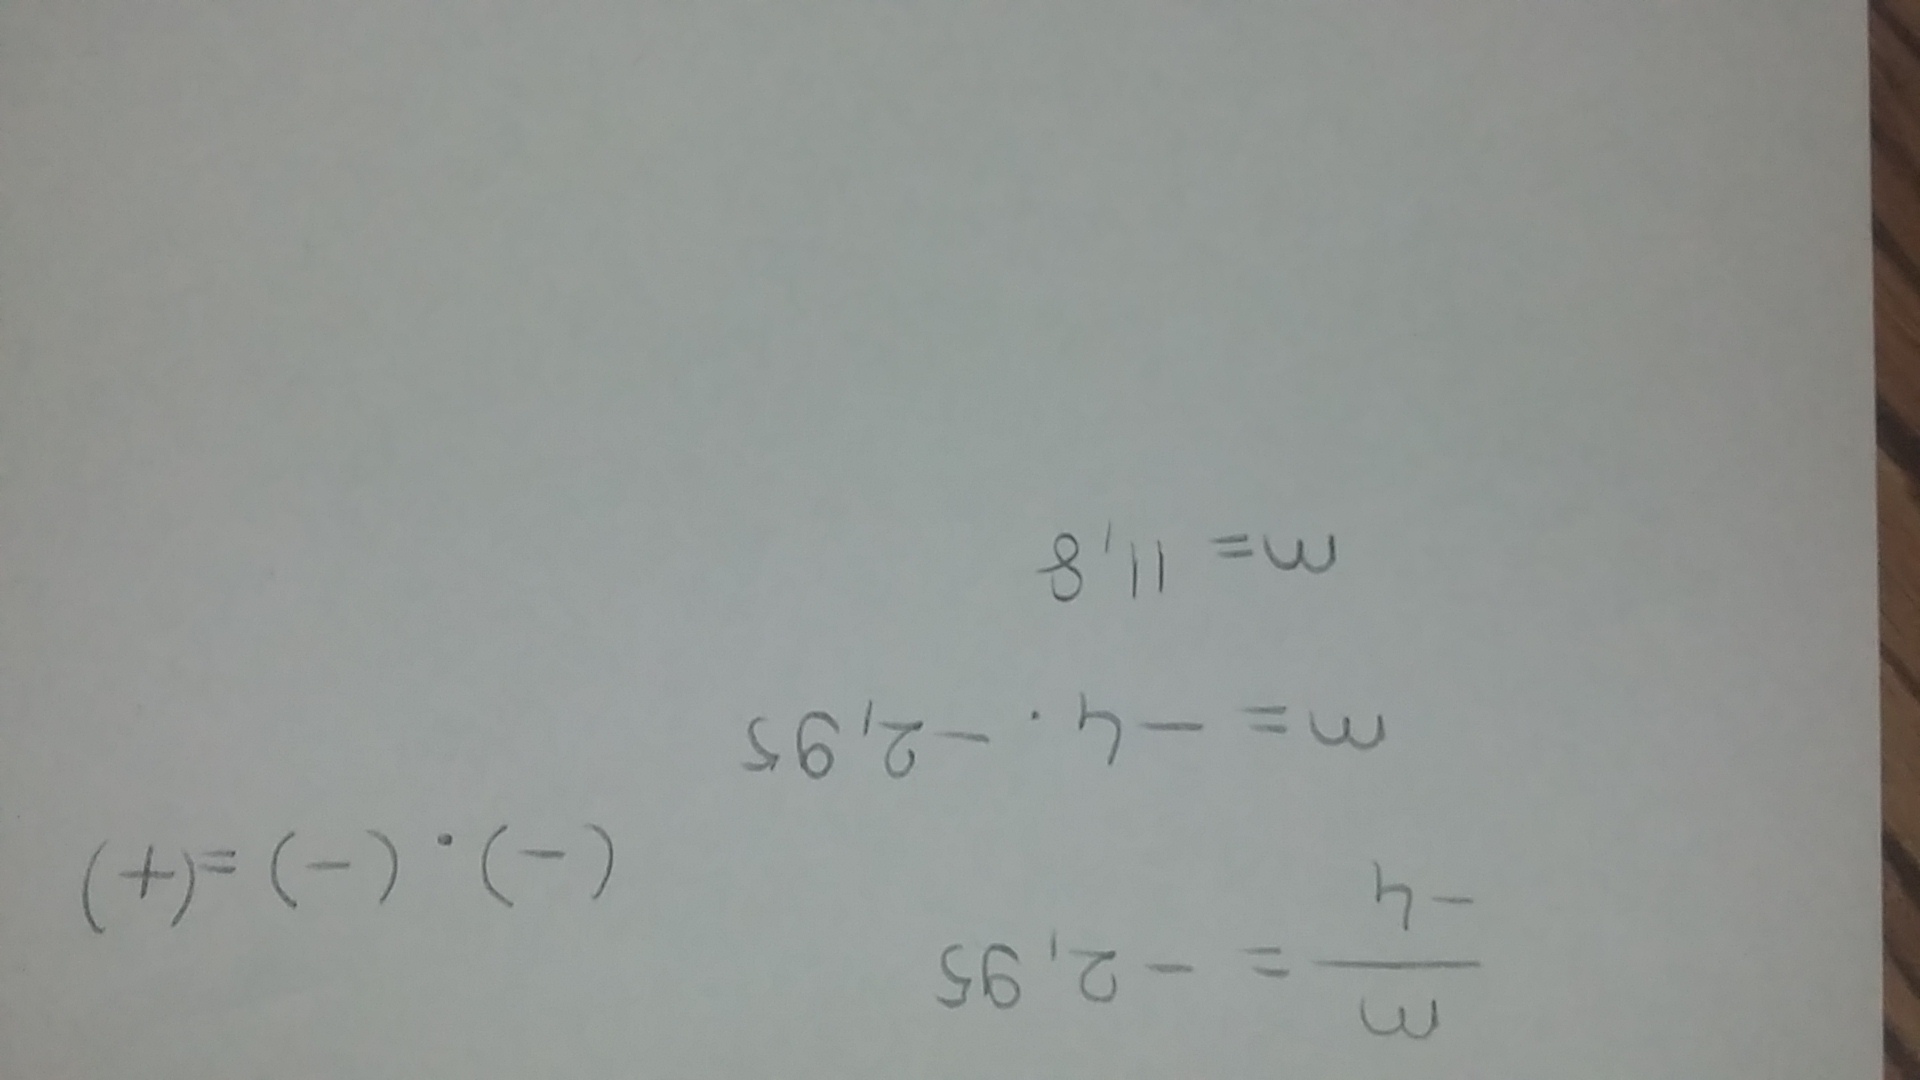 m
— = -2,95
-4
(-)·(-)=(+)
m = -4 · -2,95
m = 11,8